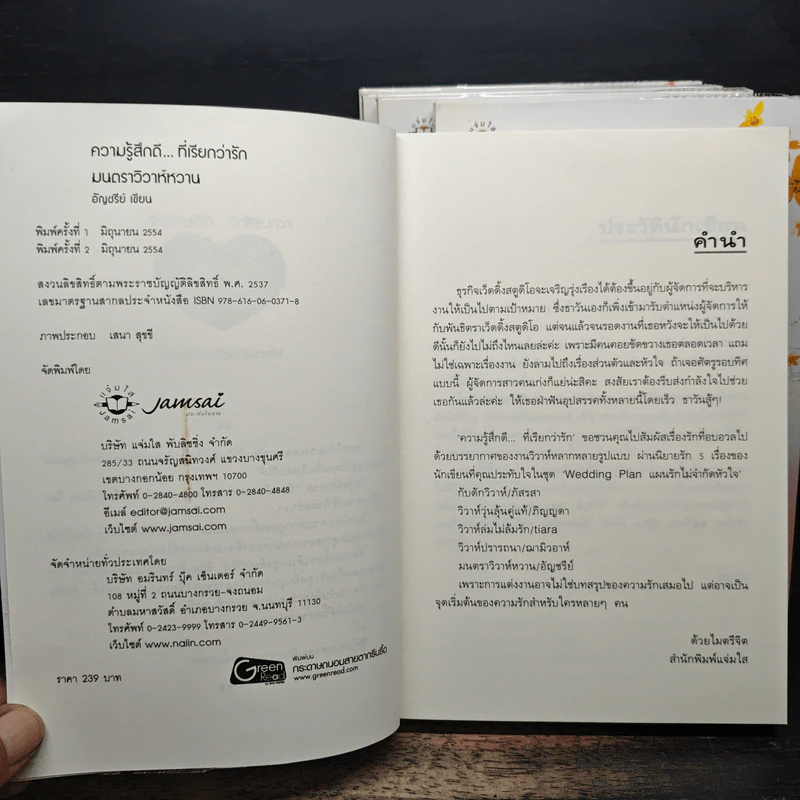 ความรู้สึกดี... ที่เรียกว่ารัก
มนตราวิวาห์หวาน
อัญชรีย์ เขียน
พิมพ์ครั้งที่ 1 มิถุนายน 2554
พิมพ์ครั้งที่ 2 มิถุนายน 2554
สงวนลิขสิทธิ์ตามพระราชบัญญัติลิขสิทธิ์ พ.ศ. 2537
เลขมาตรฐานสากลประจำหนังสือ ISBN 978-616-06-0371-8
ภาพประกอบ เสนา สุขขี
จัดพิมพ์โดย
แจ่มใส
JAMSAI
Jamsai
บริษัท แจ่มใส พับลิชชิ่ง จำกัด
285/33 ถนนจรัญสนิทวงศ์ แขวงบางขุนศรี
เขตบางกอกน้อย กรุงเทพฯ 10700
โทรศัพท์ 0-2840-4800 โทรสาร 0-2840-4848
อีเมล์ editor@jamsai.com
เว็บไซต์ www.jamsai.com
จัดจำหน่ายทั่วประเทศโดย
บริษัท อมรินทร์ บุ๊ค เซ็นเตอร์ จำกัด
108 หมู่ที่ 2 ถนนบางกรวย-จงถนอม
ตำบลมหาสวัสดิ์ อำเภอบางกรวย จ.นนทบุรี 11130
โทรศัพท์ 0-2423-9999 โทรสาร 0-2449-9561-3
เว็บไซต์ www.naiin.com
Green Read
พิมพ์บน
กระดาษถนอมสายตากรีนรี้ด
www.greenread.com
ราคา 239 บาท
คำนำ
ธุรกิจเว็ดดิ้งสตูดิโอจะเจริญรุ่งเรืองได้ต้องขึ้นอยู่กับผู้จัดการที่จะบริหาร
งานให้เป็นไปตามเป้าหมาย ซึ่งธาวันเองก็เพิ่งเข้ามารับตำแหน่งผู้จัดการให้
กับพันธิตราเว็ดดิ้งสตูดิโอ แต่จนแล้วจนรอดงานที่เธอหวังจะให้เป็นไปด้วย
ดีนั้นก็ยังไปไม่ถึงไหนเลยล่ะค่ะ เพราะมีคนคอยขัดขวางเธอตลอดเวลา แถม
ไม่ใช่เฉพาะเรื่องงาน ยังลามไปถึงเรื่องส่วนตัวและหัวใจ ถ้าเจอศัตรูรอบทิศ
แบบนี้ ผู้จัดการสาวคนเก่งก็แย่น่ะสิคะ สงสัยเราต้องรีบส่งกำลังใจไปช่วย
เธอกันแล้วล่ะค่ะ ให้เธอฝ่าฟันอุปสรรคทั้งหลายนี้โดยเร็ว ธาวันสู้ๆ!
'ความรู้สึกดี... ที่เรียกว่ารัก' ขอชวนคุณไปสัมผัสเรื่องรักที่อบอวลไป
ด้วยบรรยากาศของงานวิวาห์หลากหลายรูปแบบ ผ่านนิยายรัก 5 เรื่องของ
นักเขียนที่คุณประทับใจในชุด 'Wedding Plan แผนรักไม่จำกัดหัวใจ'
กับดักวิวาห์/ภัสรสา
วิวาห์วุ่นลุ้นคู่แท้/ภิญญดา
วิวาห์ล่มไม่ล้มรัก/tiara
วิวาห์ปรารถนา/ฌามิวอาห์
มนตราวิวาห์หวาน/อัญชรีย์
เพราะการแต่งงานอาจไม่ใช่บทสรุปของความรักเสมอไป แต่อาจเป็น
จุดเริ่มต้นของความรักสำหรับใครหลายๆ คน
ด้วยไมตรีจิต
สำนักพิมพ์แจ่มใส